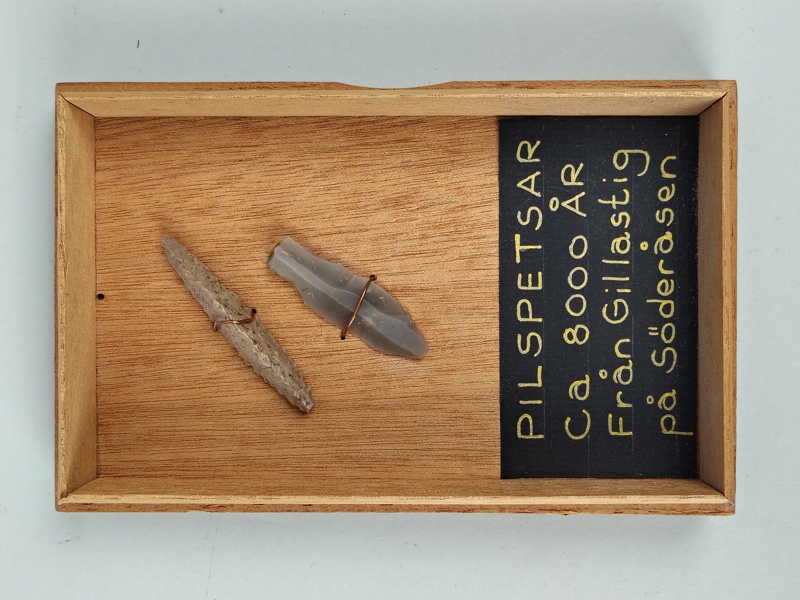 PILSPETSAR
Ca 8000 ÅR
Från Gillastig
på Söderåsen